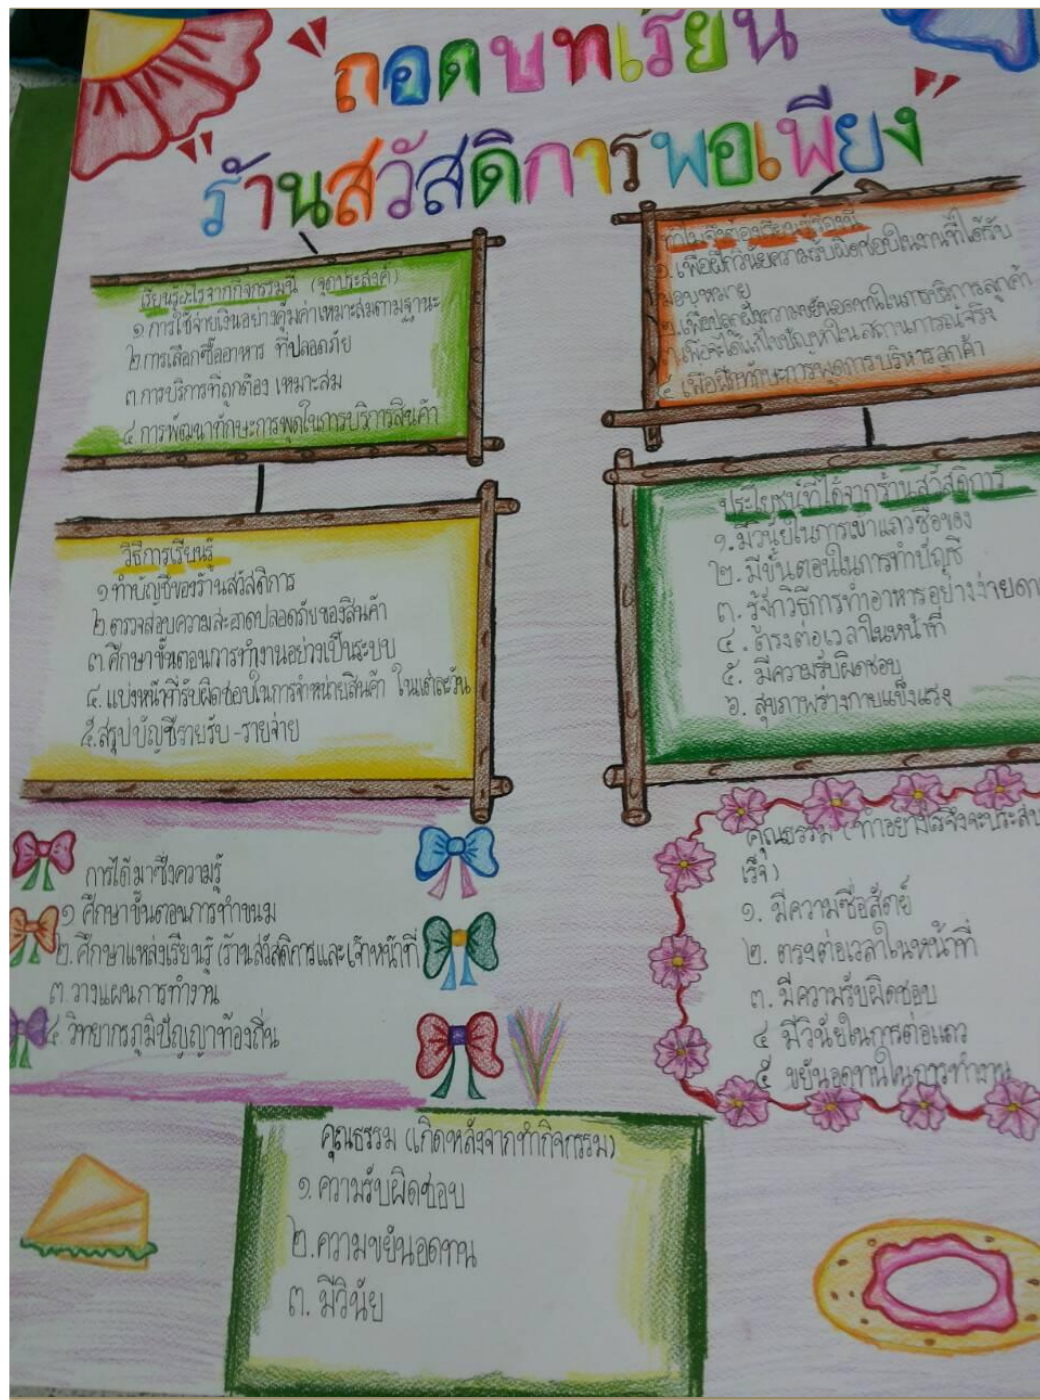 "ถอดบทเรียน
"ร้านสวัสดิการพอเพียง"
เรียนรู้อะไรจากกิจกรรมนี้ (จุดประสงค์)
๑ การใช้จ่ายเงินอย่างคุ้มค่าเหมาะสมตามฐานะ
๒ การเลือกซื้ออาหาร ที่ปลอดภัย
๓ การบริการที่ถูกต้อง เหมาะสม
๔ การพัฒนาทักษะการพูดในการบริการสินค้า
ทำไมจึงต้องเรียนรู้เรื่องนี้
๑. เพื่อฝึกวินัยความรับผิดชอบในงานที่ได้รับ
มอบหมาย
๒. เพื่อปลูกฝังความขยันอดทนในการบริการลูกค้า
๓. เพื่อจะได้แก้ไขปัญหาใน สถานการณ์จริง
๔ เพื่อฝึกทักษะการพูดการบริหารลูกค้า
วิธีการเรียนรู้
๑ ทำบัญชีของร้านสวัสดิการ
๒. ตรวจสอบความสะอาดปลอดภัยของสินค้า
๓ ศึกษาขั้นตอนการทำงานอย่างเป็นระบบ
๔. แบ่งหน้าที่รับผิดชอบในการจำหน่ายสินค้า ในแต่ละวัน
๕. สรุปบัญชีรายรับ - รายจ่าย
ประโยชน์ที่ได้จากร้านสวัสดิการ
๑. มีวินัยในการเข้าแถวซื้อของ
๒. มีขั้นตอนในการทำบัญชี
๓. รู้จักวิธีการทำอาหารอย่างง่ายดา
๔. ตรงต่อเวลาในหน้าที่
๕. มีความรับผิดชอบ
๖. สุขภาพร่างกายแข็งแรง
การได้มาซึ่งความรู้
๑ ศึกษาขั้นตอนการทำขนม
๒. ศึกษาแหล่งเรียนรู้ (ร้านสวัสดิการและเจ้าหน้าที่
๓. วางแผนการทำงาน
๔. วิทยากรภูมิปัญญาท้องถิ่น
คุณธรรม (ทำอย่างไรจึงจะประสบ
เร็จ)
๑. มีความซื่อสัตย์
๒. ตรงต่อเวลาในหน้าที่
๓. มีความรับผิดชอบ
๔ มีวินัยในการต่อแถว
๕ ขยันอดทนในการทำงาน
คุณธรรม (เกิดหลังจากทำกิจกรรม)
๑. ความรับผิดชอบ
๒. ความขยันอดทน
๓. มีวินัย